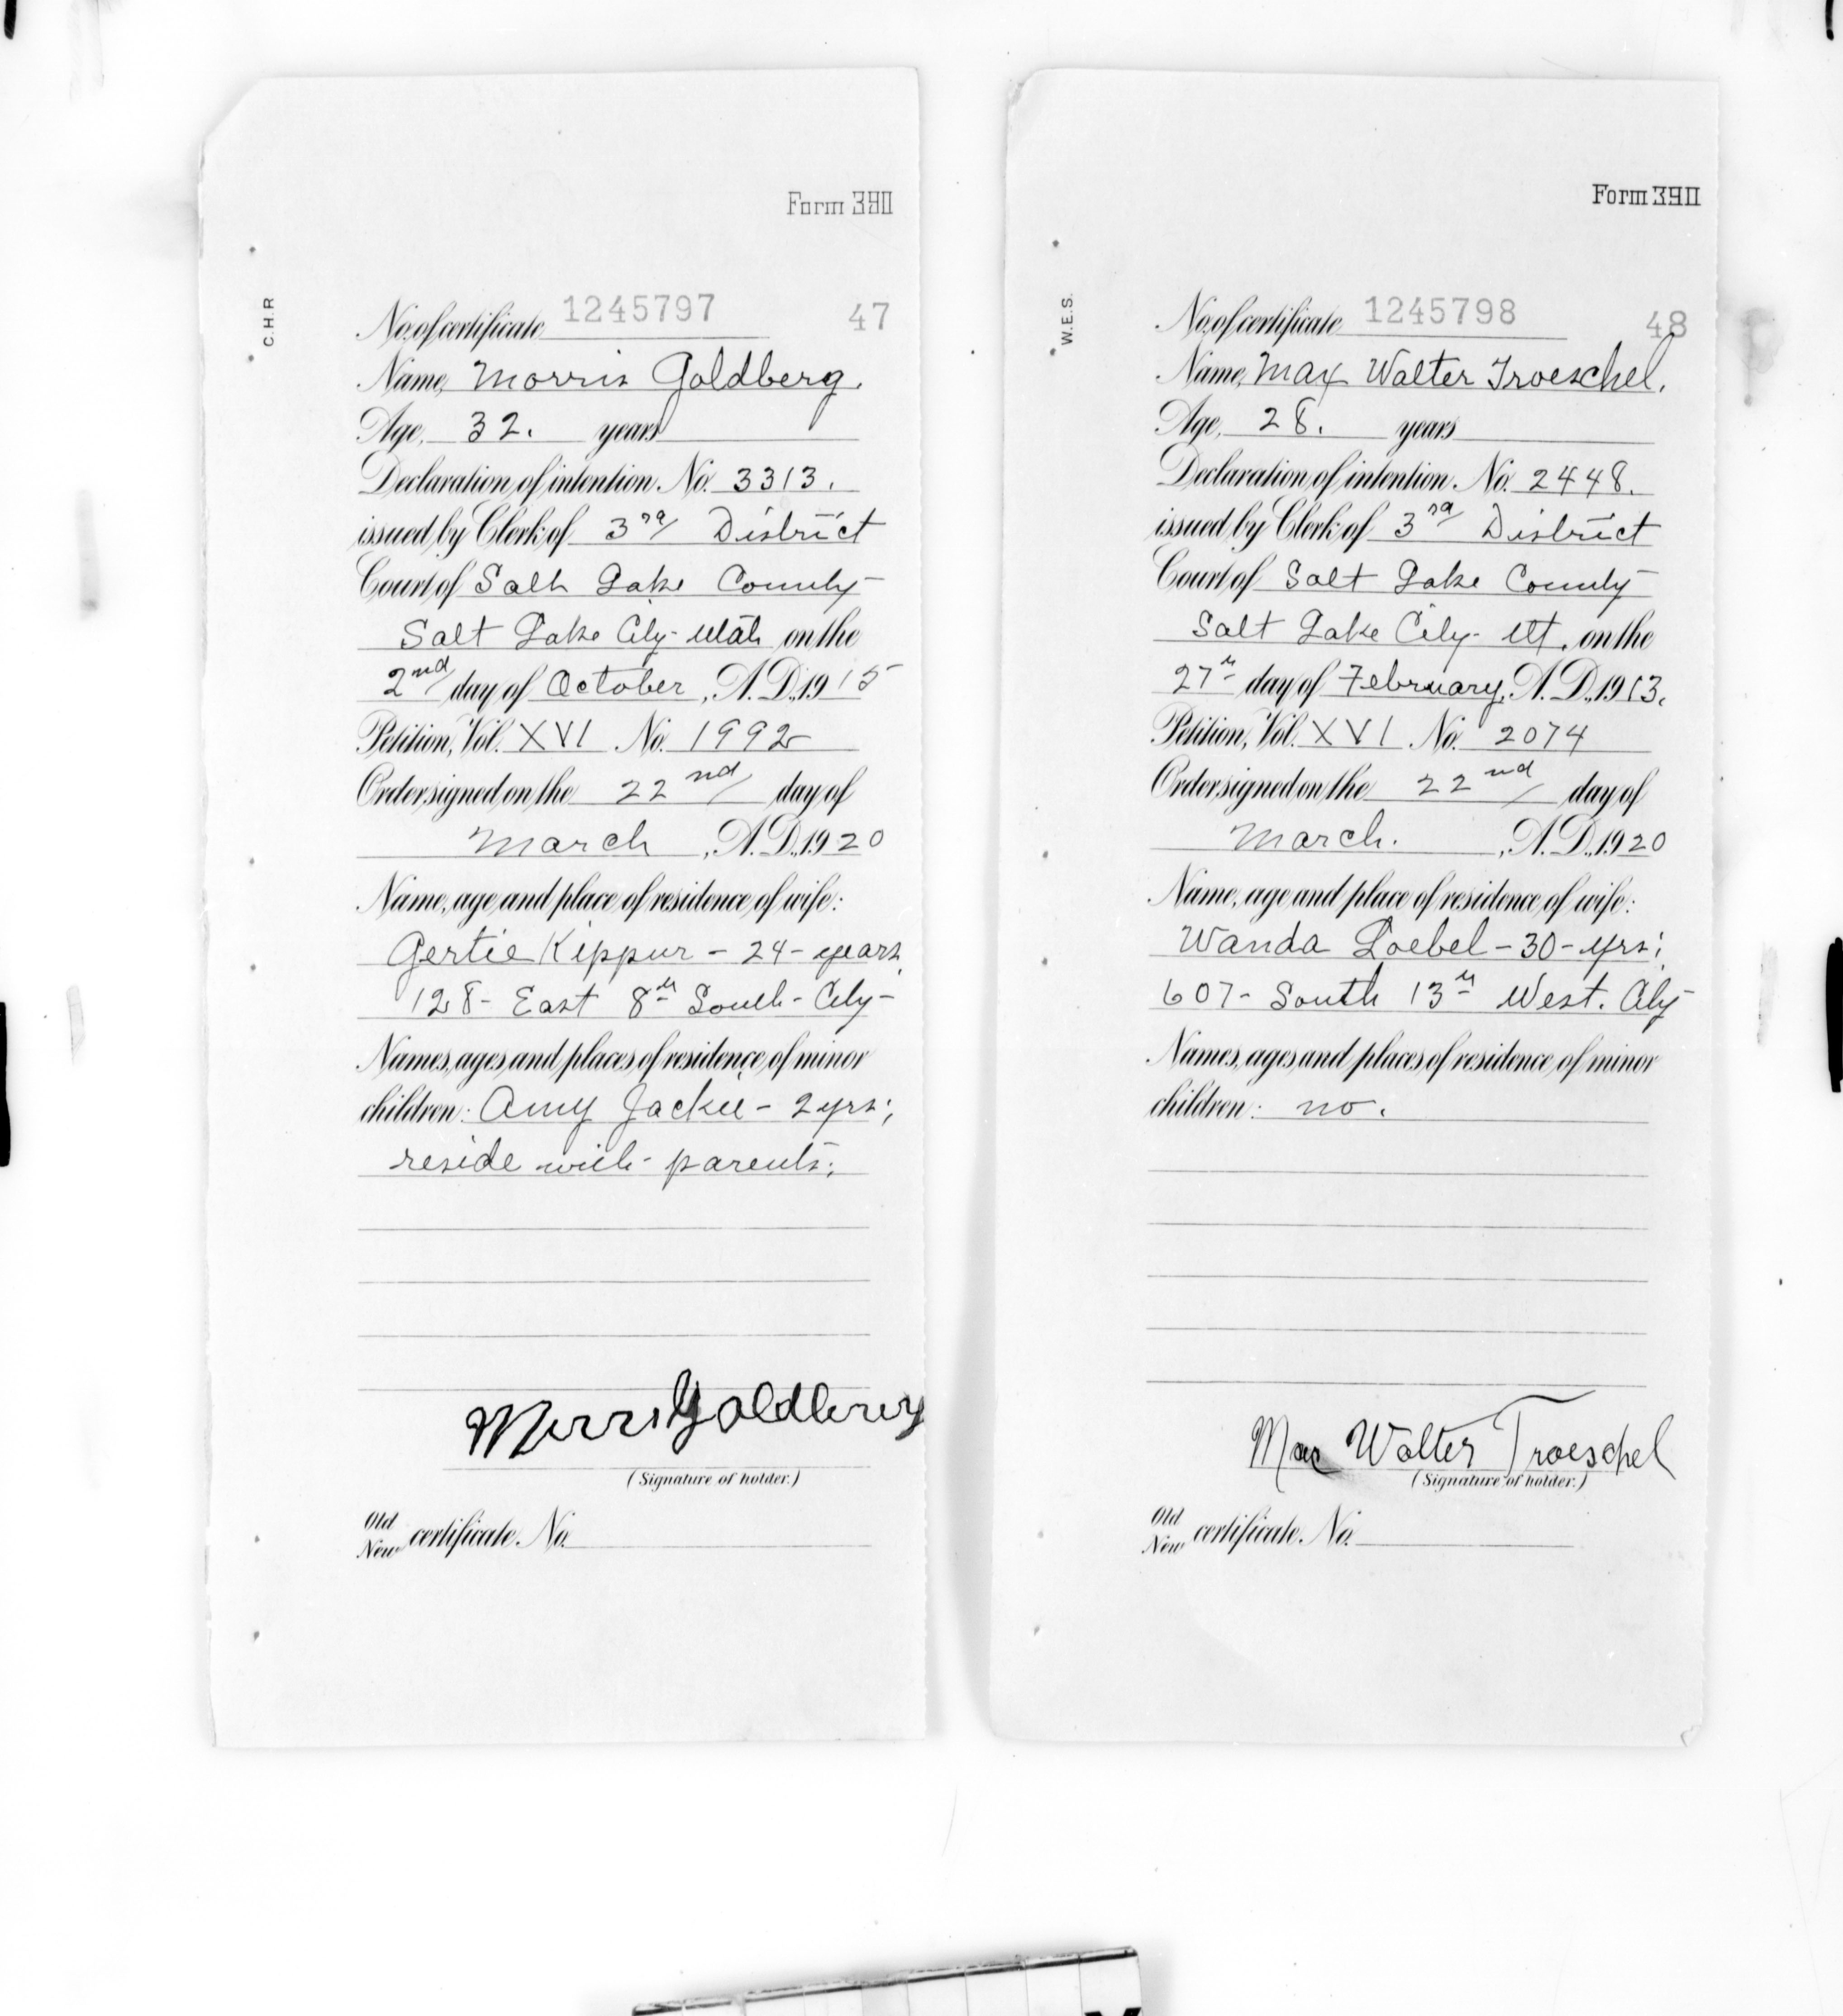 Form 390
C.H.R
No. of certificate 1245797 47
Name, Morris Goldberg.
Age, 32. years
Declaration of intention. No. 3313.
issued by Clerk of 3rd District
Court of Salt Lake County
Salt Lake City - Utah on the
2nd day of October, A.D. 1915
Petition, Vol. XVI No. 1992
Order signed on the 22nd day of
March, A.D. 1920
Name, age and place of residence of wife:
Gertie Kippur - 24 - years.
128 - East 8th South - City -
Names, ages and places of residence of minor
children: Amy Jackie - 2 yrs;
reside with parents;
Morris Goldberg
(Signature of holder.)
Old
New certificate. No.
Form 390
W.E.S.
No. of certificate 1245798 48
Name, Max Walter Troeschel.
Age, 28. years
Declaration of intention. No. 2448.
issued by Clerk of 3rd District
Court of Salt Lake County
Salt Lake City - Ut. on the
27th day of February, A.D. 1913.
Petition, Vol. XVI No. 2074
Order signed on the 22nd day of
March. , A.D. 1920
Name, age and place of residence of wife:
Wanda Loebel - 30 - yrs;
607 - South 13th West. City
Names, ages and places of residence of minor
children: no.
Max Walter Troeschel
(Signature of holder.)
Old
New certificate. No.